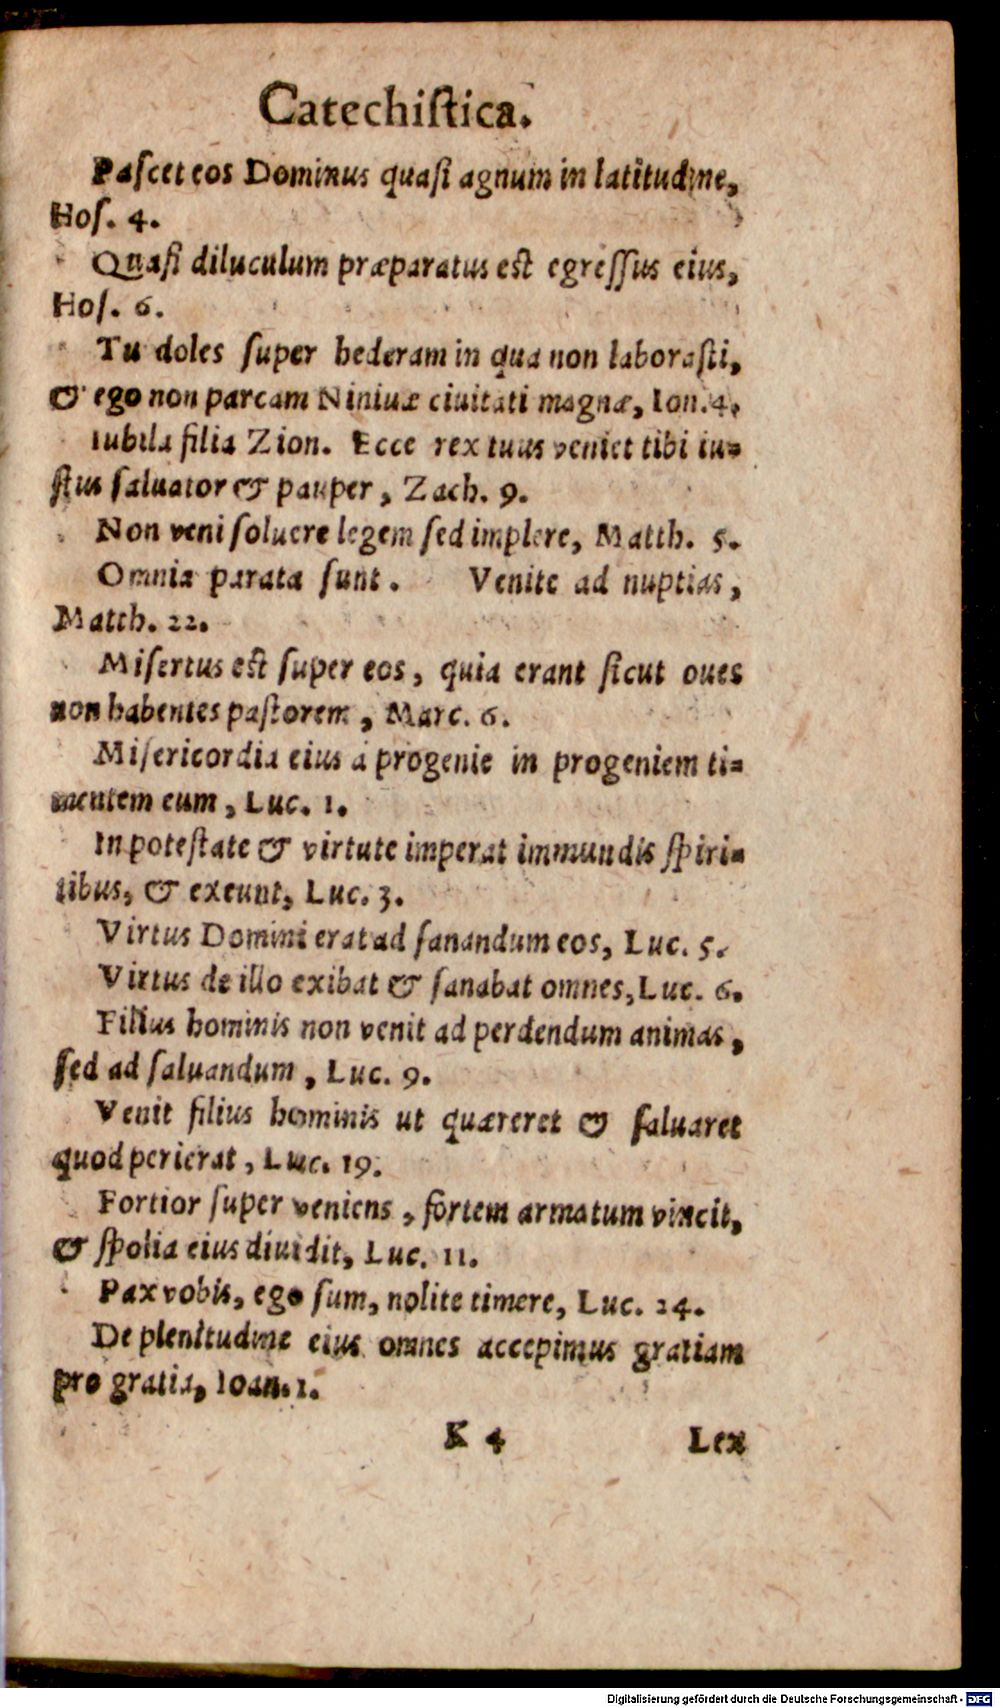 Catechiſtica.
Paſcet eos Dominus quaſi agnum in latitudine,
Hoſ. 4.
Quaſi diluculum præparatus est egreſſus eius,
Hoſ. 6.
Tu doles ſuper hederam in qua non laboraſti,
& ego non parcam Niniuæ ciuitati magnæ, Ion. 4.
Iubila filia Zion. Ecce rex tuus veniet tibi iu-
ſtus ſaluator & pauper, Zach. 9.
Non veni ſoluere legem ſed implere, Matth. 5.
Omnia parata ſunt. Venite ad nuptias,
Matth. 22.
Miſertus est ſuper eos, quia erant ſicut oues
non habentes paſtorem, Marc. 6.
Miſericordia eius à progenie in progeniem ti-
mentem eum, Luc. 1.
In poteſtate & virtute imperat immundis ſpiri-
tibus, & exeunt, Luc. 3.
Virtus Domini erat ad ſanandum eos, Luc. 5.
Virtus de illo exibat & ſanabat omnes, Luc. 6.
Filius hominis non venit ad perdendum animas,
ſed ad ſaluandum, Luc. 9.
Venit filius hominis ut quæreret & ſaluaret
quod perierat, Luc. 19.
Fortior ſuper veniens, fortem armatum vincit,
& ſpolia eius diuidit, Luc. 11.
Pax vobis, ego ſum, nolite timere, Luc. 24.
De plenitudine eius omnes accepimus gratiam
pro gratia, Ioan. 1.
K 4 Lex
Digitalisierung gefördert durch die Deutsche Forschungsgemeinschaft - DFG